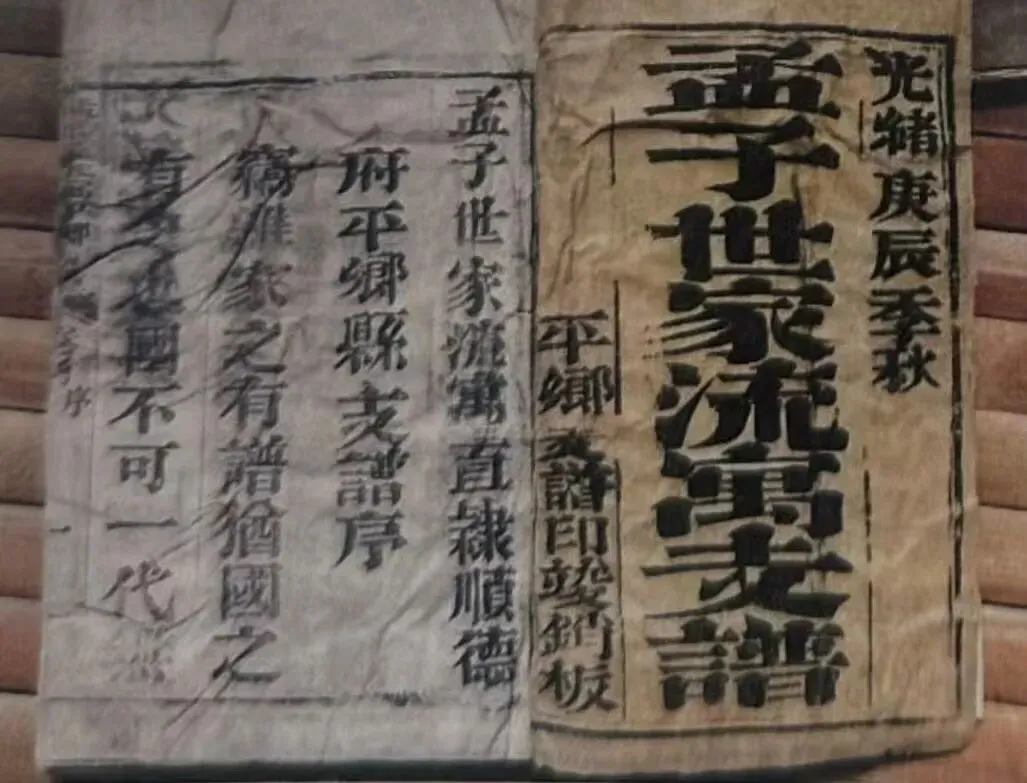 光緒庚辰季秋
孟子世家流寓支譜
平鄉支譜印竣銷板
孟子世家流寓直隸順德
府平鄉縣支譜序
竊維家之有譜猶國之
有史也國不可一代無
序
一